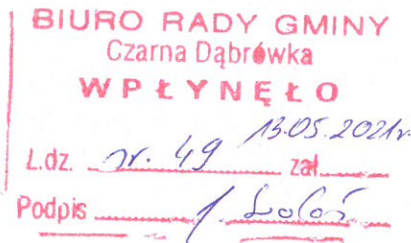 BIURO RADY GMINY
Czarna Dąbrówka
WPŁYNĘŁO
13.05.2021r.
L.dz. nr. 49 zał.
Podpis